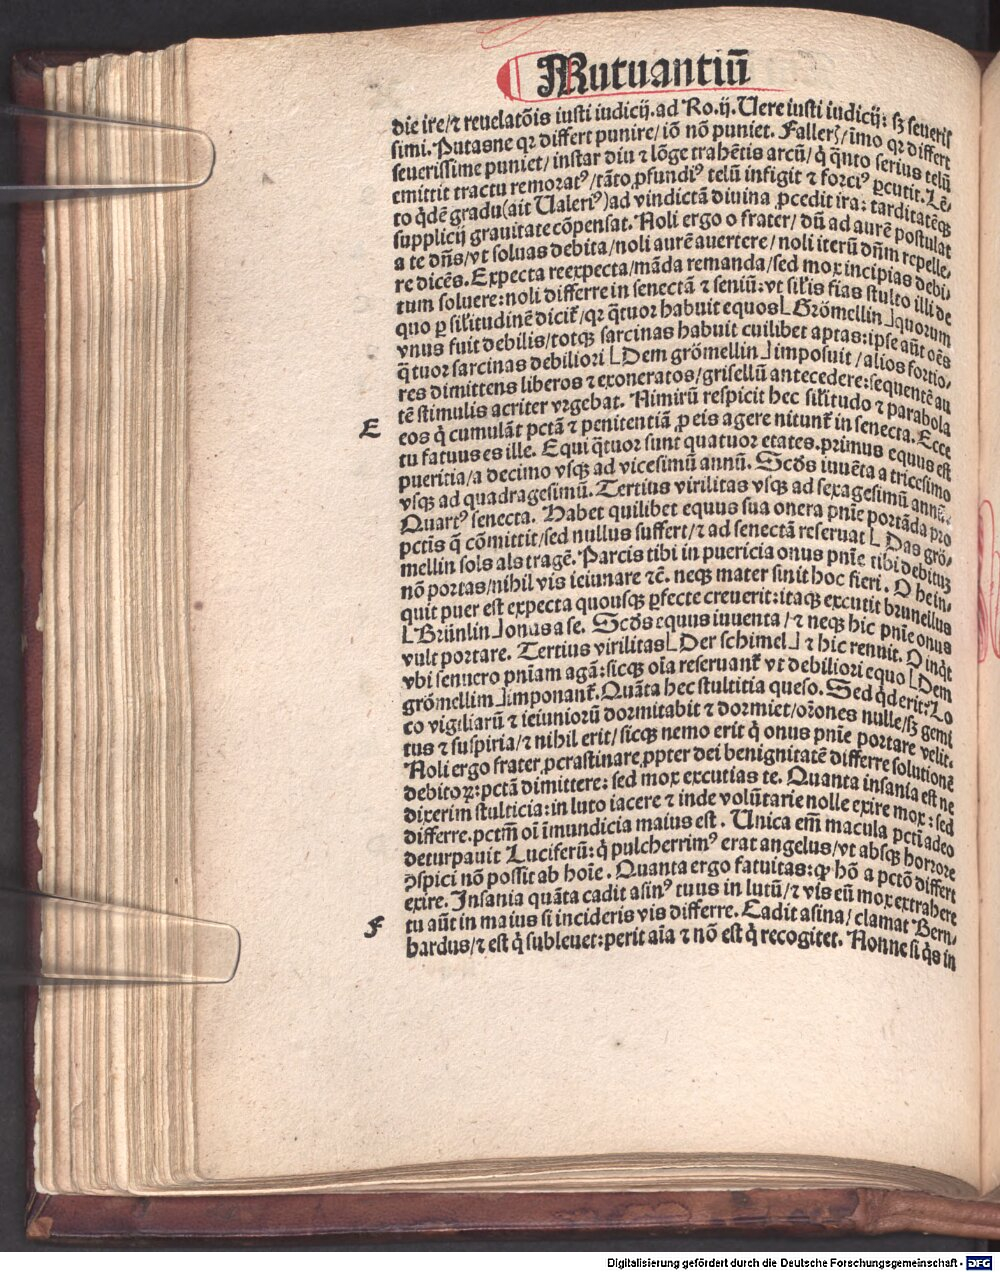 Mutuantiū
die ire/⁊ reuelatōis iusti iudicij. ad Ro. ij. Uere iusti iudicij: sꝫ seueris
simi. Putasne qꝛ differt punire/ iō nō puniet. Fallerꝭ/ imo qꝛ differt
seuerissime puniet/ instar diu ⁊ lōge trahētis arcū/ q̇ q̄nto serius telū
emittit tractu remoratꝰ/ tāto ꝓfundiꝰ telū infigit ⁊ forciꝰ ꝑcutit. Lē⸗
to q̇dē gradu (ait Ualeriꝰ) ad vindictā diuina ꝓcedit ira: tarditatēqꝫ
supplicij grauitate cōpensat. Noli ergo o frater/ dū ad aurē postulat
a te dn̄s/ vt soluas debita/ noli aurē auertere/ noli iterū dn̄m repelle⸗
re dicēs. Expecta reexpecta/ māda remanda/ sed mox incipias debi⸗
tum soluere: noli differre in senectā ⁊ seniū: vt sil̓is fias stulto illi de
quo ꝑ sil̓itudinē dicit̄/ qꝛ q̄tuor habuit equos ⌊Grömellin⌋ quorum
vnus fuit debilis/ totqꝫ sarcinas habuit cuilibet aptas: ipse aūt oēs
q̄tuor sarcinas debiliori ⌊Dem grömellin⌋ imposuit/ alios fortio⸗
res dimittens liberos ⁊ exoneratos/ grisellū antecedere: sequentē au
tē stimulis acriter vrgebat. Nimirū respicit hec sil̓itudo ⁊ parabola
E
eos q̇ cumulāt pctā ⁊ penitentiā ꝓ eis agere nitunt̄ in senecta. Ecce
tu fatuus es ille. Equi q̄tuor sunt quatuor etates. primus equus est
pueritia/ a decimo vsqꝫ ad vicesimū annū. Scđs iuuēta a tricesimo
vsqꝫ ad quadragesimū. Tertius virilitas vsqꝫ ad sexagesimū annū.
Quartꝰ senecta. Habet quilibet equus sua onera pn̄ie portāda pro
pctis q̄ cōmittit/ sed nullus suffert/ ⁊ ad senectā reseruat ⌊Das grö⸗
mellin sols als tragē. Parcis tibi in puericia onus pn̄ie tibi debituꝫ
nō portas/ nihil vis ieiunare ⁊c̄. neqꝫ mater sinit hoc fieri. O he in⸗
quit puer est expecta quousqꝫ ꝑfecte creuerit: itaqꝫ excutit brunellus
⌊Brünlin⌋ onas a se. Scđs equus iuuenta/ ⁊ neqꝫ hic pn̄ie onus
vult portare. Tertius virilitas ⌊Der schimel⌋ ⁊ hic rennit. O inq̇t
vbi senuero pn̄iam agā: sicqꝫ oīa reseruant̄ vt debiliori equo ⌊Dem
grömellim⌋ imponant̄. Quāta hec stultitia queso. Sed q̇d erit: Lo
co vigiliarū ⁊ ieiuniorū dormitabit ⁊ dormiet/ or̄ones nulle/ sꝫ gemi
tus ⁊ suspiria/ ⁊ nihil erit/ sicqꝫ nemo erit q̇ onus pn̄ie portare velit.
Noli ergo frater ꝓcrastinare ꝓpter dei benignitatē differre solutionē
debitoꝝ: pctā dimittere: sed mox excutias te. Quanta insania est ne
dixerim stulticia: in luto iacere ⁊ inde volūtarie nolle exire mox: sed
differre. pctm̄ oī imundicia maius est. Unica em̄ macula pcti adeo
deturpauit Luciferū: q̇ pulcherrimꝰ erat angelus/ vt absqꝫ horrore
ꝯspici nō possit ab hoīe. Quanta ergo fatuitas: ꝙ hō a pctō differt
exire. Insania quāta cadit asinꝰ tuus in lutū/ ⁊ vis eū mox extrahere
F
tu aūt in maius si incideris vis differre. Cadit asina/ clamat Bern⸗
hardus/ ⁊ est q̇ subleuet: perit aīa ⁊ nō est q̇ recogitet. Nonne si q̇s in
Digitalisierung gefördert durch die Deutsche Forschungsgemeinschaft - DFG